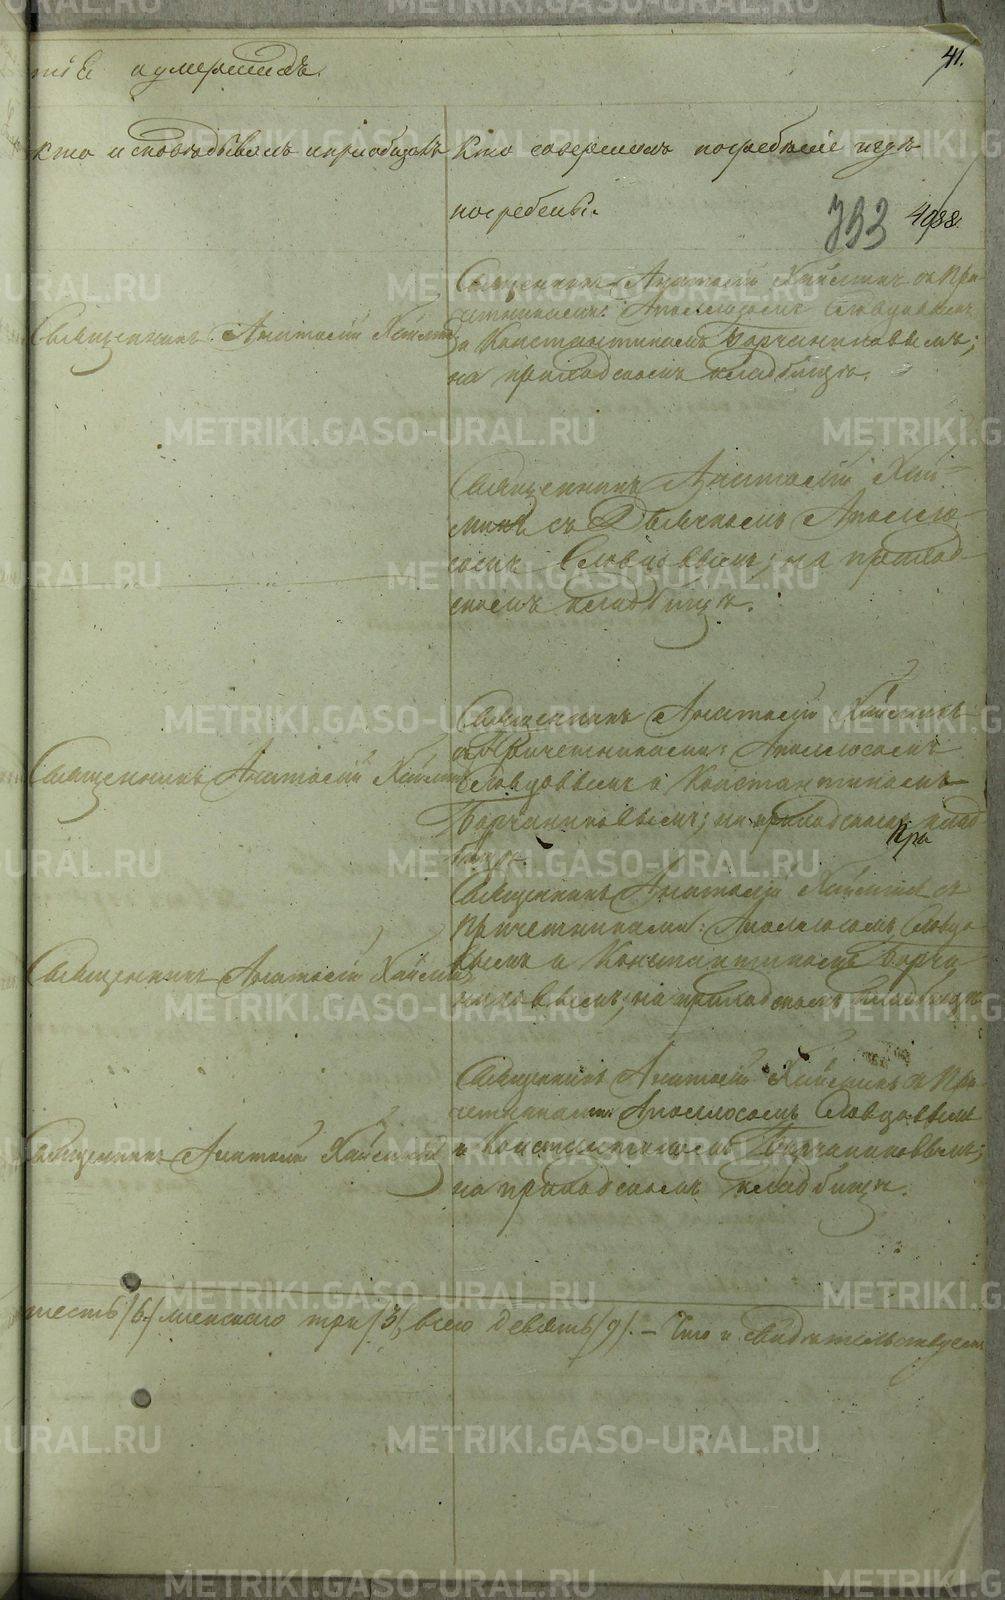 тiя о умершихъ.
41.
Кто исповѣдывалъ и прiобщалъ
Кто совершалъ погребенiе и гдѣ
погребены.
793 4988.
Священникъ Анатолiй
Священникъ Анатолiй съ При
четниками: Аполлосомъ Словцовымъ
и Константиномъ Борчаниновымъ;
на приходскомъ кладбищѣ.
Священникъ Анатолiй Хай=
минъ съ Дьячкомъ Аполло
сомъ Словцовымъ; на приход
скомъ кладбищѣ.
Священникъ Анатолiй
Священникъ Анатолiй
съ Причетниками: Аполлосомъ
Словцовымъ и Константиномъ
Борчаниновымъ; на приходскомъ клад
бищѣ.
При
Священникъ Анатолiй
Священникъ Анатолiй съ
Причетниками: Аполлосомъ Словцо
вымъ и Константиномъ Борча
ниновымъ; на приходскомъ кладбищѣ
Священникъ Анатолiй
Священникъ Анатолiй съ При
четниками Аполлосомъ Словцовымъ
и Константиномъ Борчаниновымъ;
на приходскомъ кладбищѣ.
шесть /6./ женскаго три /3/, всего девять /9/. – Что и свидѣтельствуемъ
METRIKI.GASO-URAL.RU